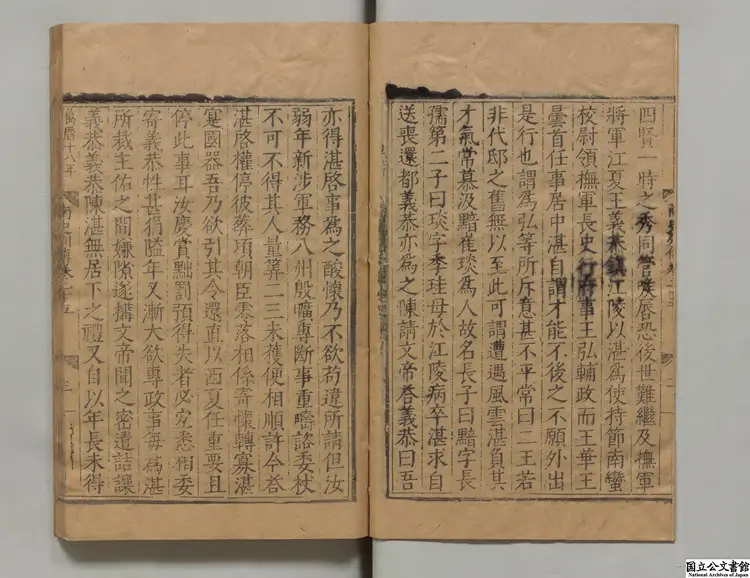 四賢一時之秀同管喉唇恐後世難繼及撫軍
將軍江夏王義恭鎮江陵以湛爲使持節南蠻
校尉領撫軍長史行府事王弘輔政而王華王
曇首任事居中湛自謂才能不後之不願外出
是行也謂爲弘等所斥意甚不平常曰二王若
非代邸之舊無以至此可謂遭遇風雲湛負其
才氣常慕汲黯崔琰爲人故名長子曰黯字長
孺第二子曰琰字季珪母於江陵病卒湛求自
送喪還都義恭亦爲之陳請文帝荅義恭曰吾
亦得湛啓事爲之酸懷乃不欲苟違所請但汝
弱年新涉軍務八州殷曠專斷事重疇諮委杖
不可不得其人量筭二三未獲便相順許今荅
湛啓權停彼葬頃朝臣零落相係寄懷轉寡湛
寔國器吾乃欲引其令還直以西夏任重要且
停此事耳汝慶賞黜罰預得失者必宜悉相委
寄義恭性甚狷隘年又漸大欲專政事每爲湛
所裁主佐之間嫌隙遂搆文帝聞之密遣詰讓
義恭義恭陳湛無居下之禮又自以年長未得
萬曆十八年
三
国立公文書館
National Archives of Japan